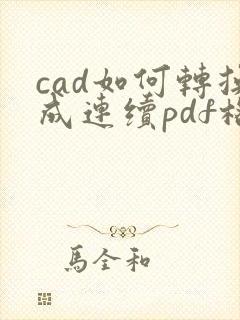 cad如何轉換
成連續pdf格
馬全和